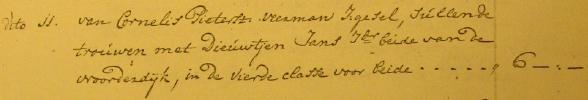 dito 11. van Cornelis Pieterst. veerman J:gesel, sullende
trouwen met Dieuwtjen Jans J:dr beide van de
woordendijk, in de vierde classe voor beide - - - - - , 6 - . -